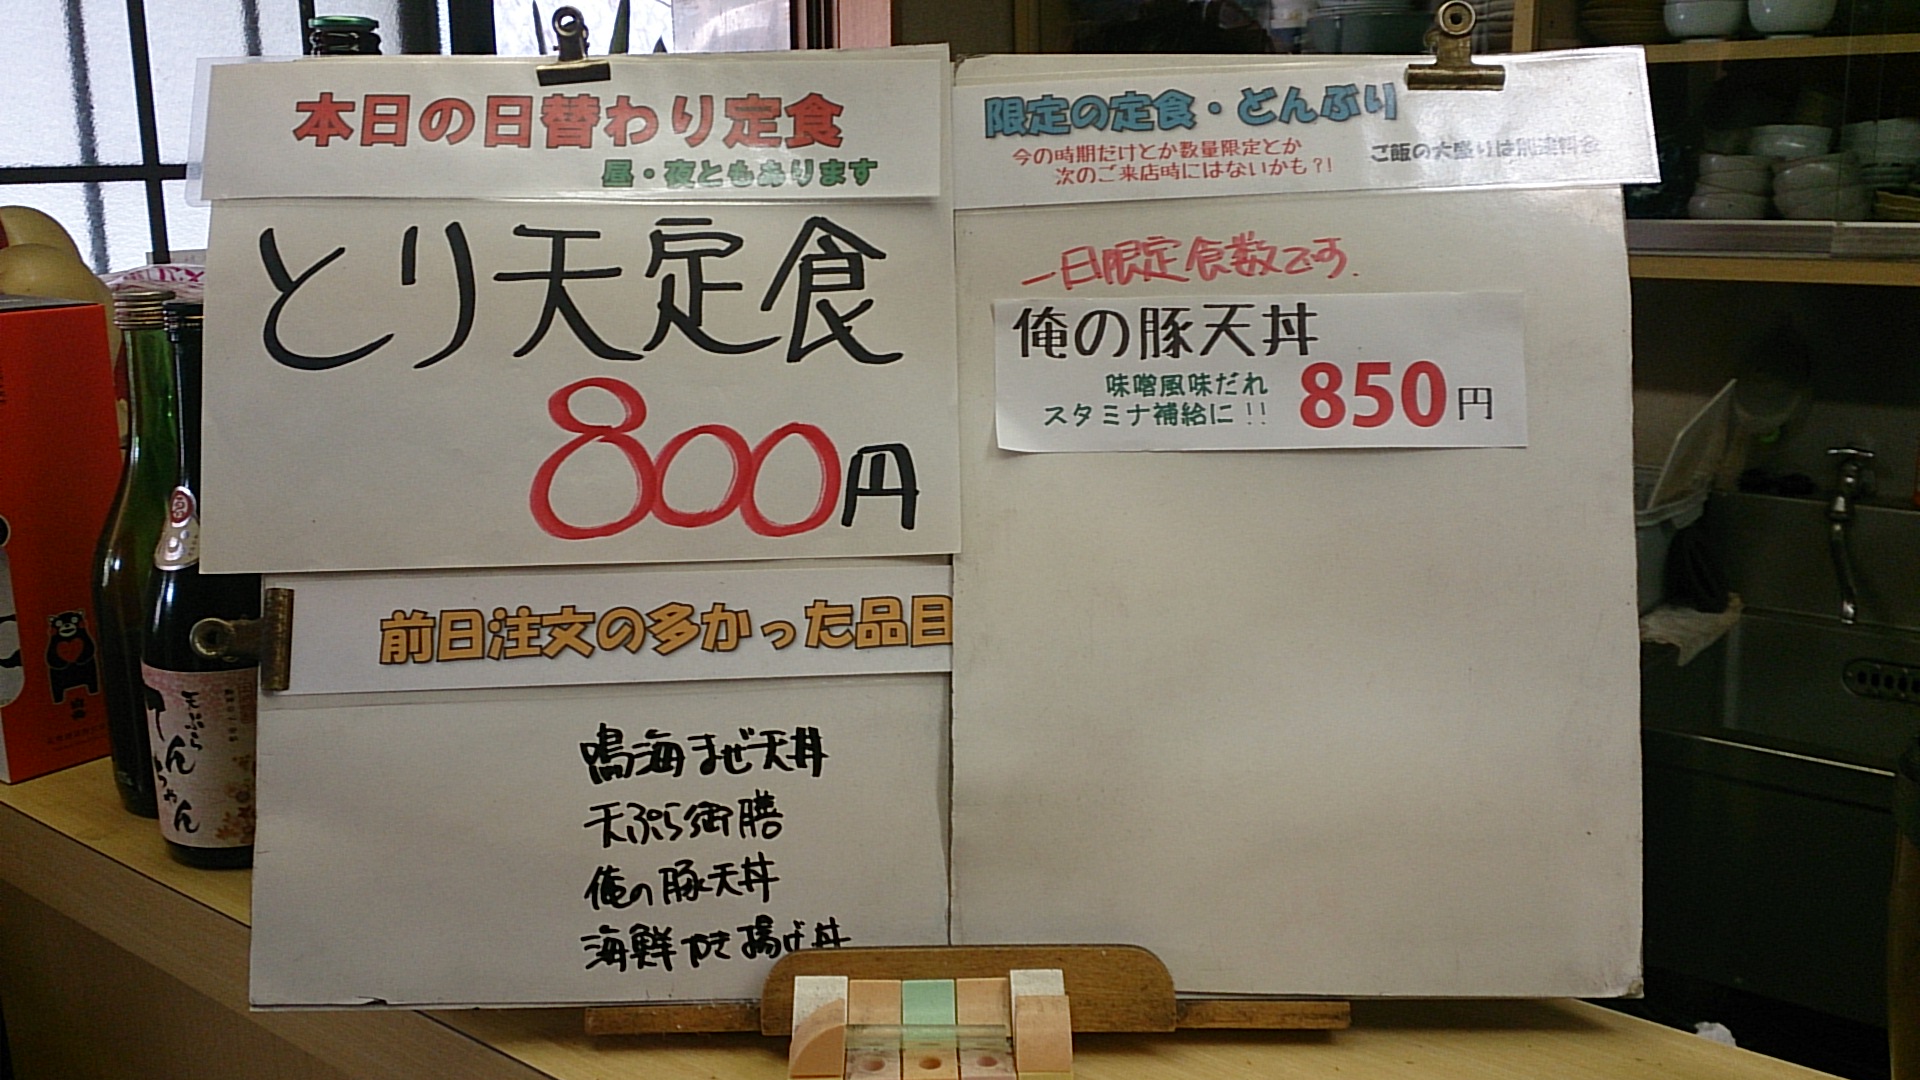 本日の日替わり定食
昼・夜ともあります
とり天定食
800円
前日注文の多かった品目
鳴海まぜ天丼
天ぷら御膳
俺の豚天丼
海鮮かき揚げ丼
限定の定食・どんぶり
今の時期だけとか数量限定とか
次のご来店時にはないかも?!
ご飯の大盛りは別途料金
一日限定食数です.
俺の豚天丼
味噌風味だれ
スタミナ補給に!!
850円
天ぷら
てんちゃん